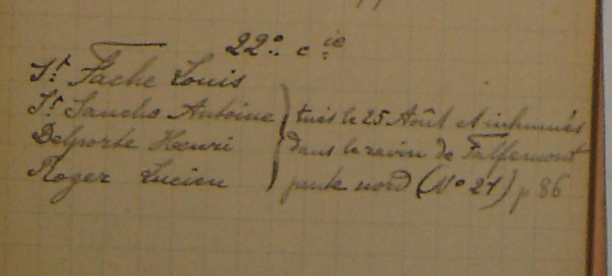 22e cie
St Fache Louis
St Sancho Antoine
Delporte Henri
Roger Lucien
tués le 25 Août et inhumés
dans le ravin de Falfemont
pente nord (No 27) p 86